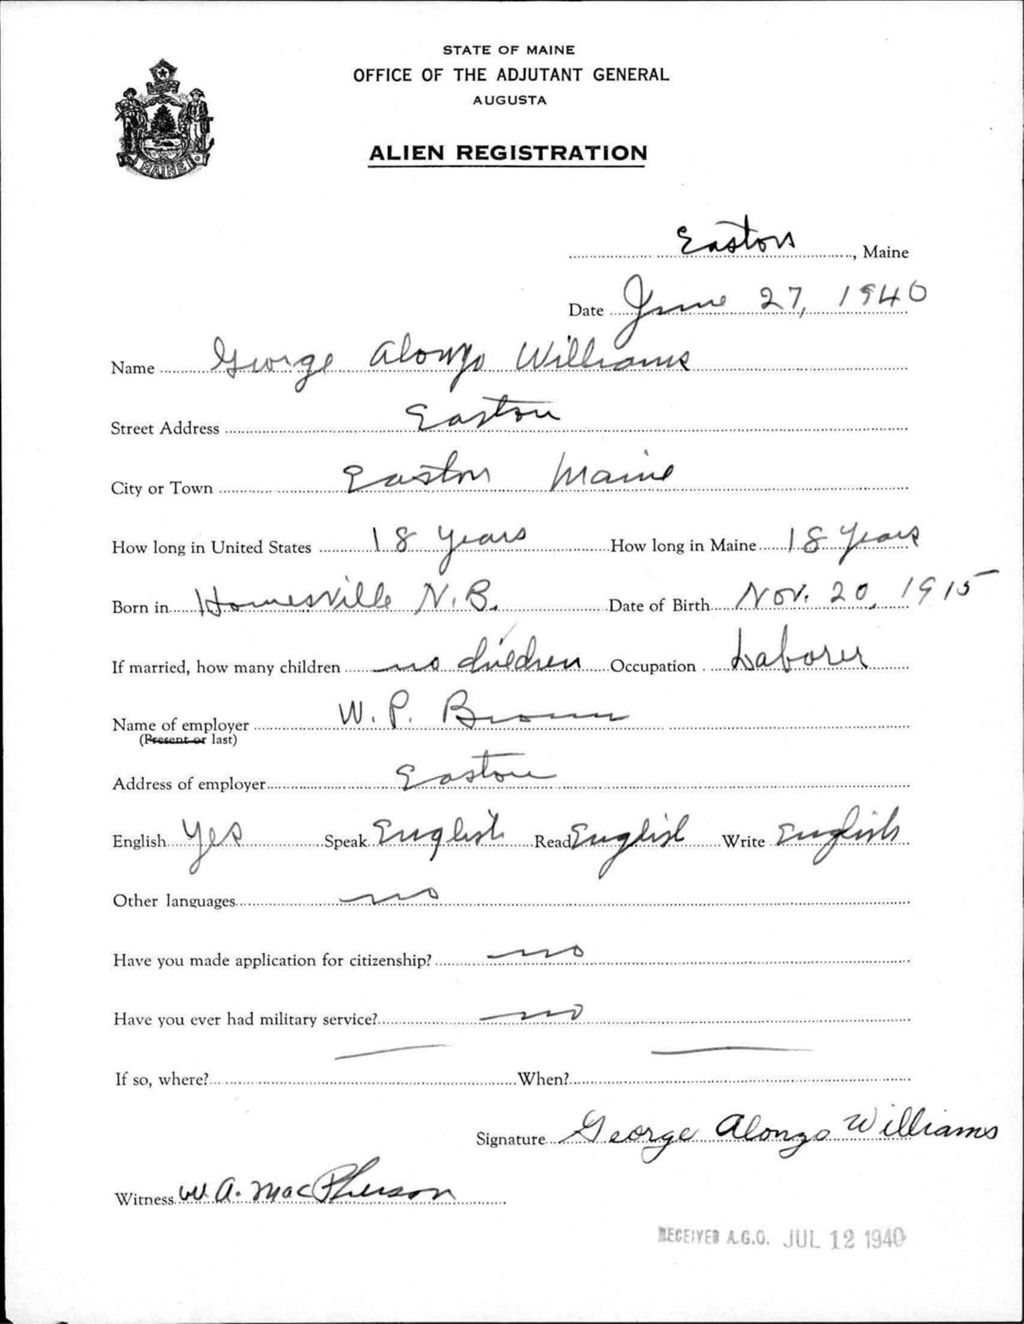 STATE OF MAINE
OFFICE OF THE ADJUTANT GENERAL
AUGUSTA
ALIEN REGISTRATION
MAINE
Easton, Maine
Date June 27, 1940
Name George Alonzo Williams
Street Address Easton
City or Town Easton Maine
How long in United States 18 years How long in Maine 18 years
Born in Homesville N.B. Date of Birth Nov. 20, 1915
If married, how many children no children Occupation Laborer
Name of employer W. P. Brown
(Present or last)
Address of employer Easton
English Yes Speak English Read English Write English
Other languages no
Have you made application for citizenship? no
Have you ever had military service? no
If so, where? — When? —
Signature George Alonzo Williams
Witness W. A. MacPherson
RECEIVED A.G.O. JUL 12 1940